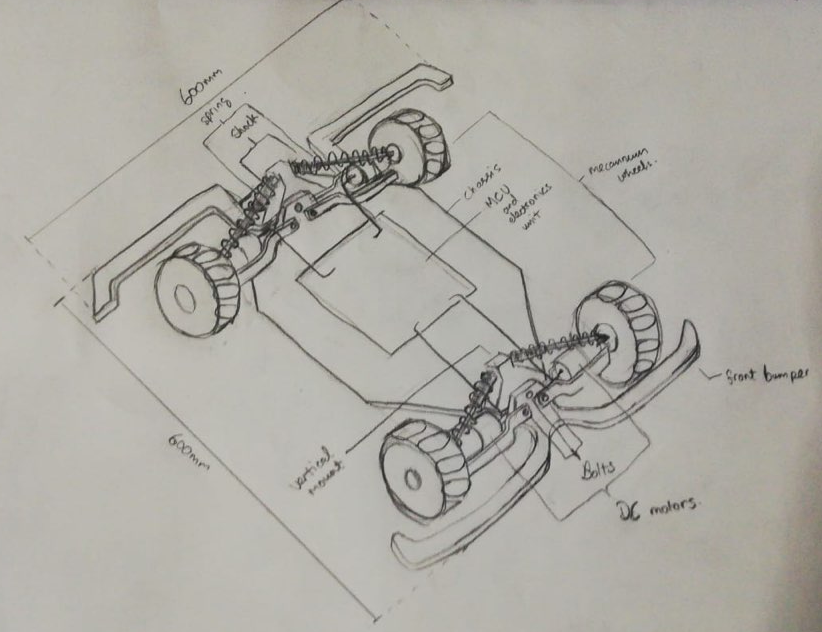 600mm
spring
shock
chassis
MCU
and
electronics
unit
mecannum
wheels.
front bumper
600mm
vertical
mount
Bolts
DC motors.